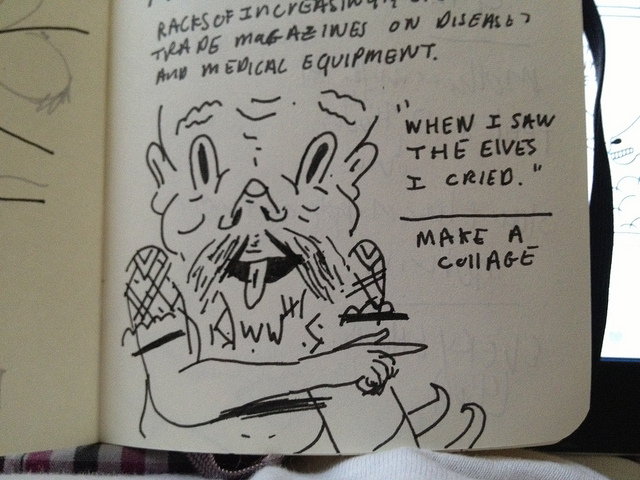 RACKS OF INCREASINGLY
TRADE MAGAZINES ON DISEASES
AND MEDICAL EQUIPMENT.
"WHEN I SAW
THE ELVES
I CRIED."
MAKE A
COLLAGE